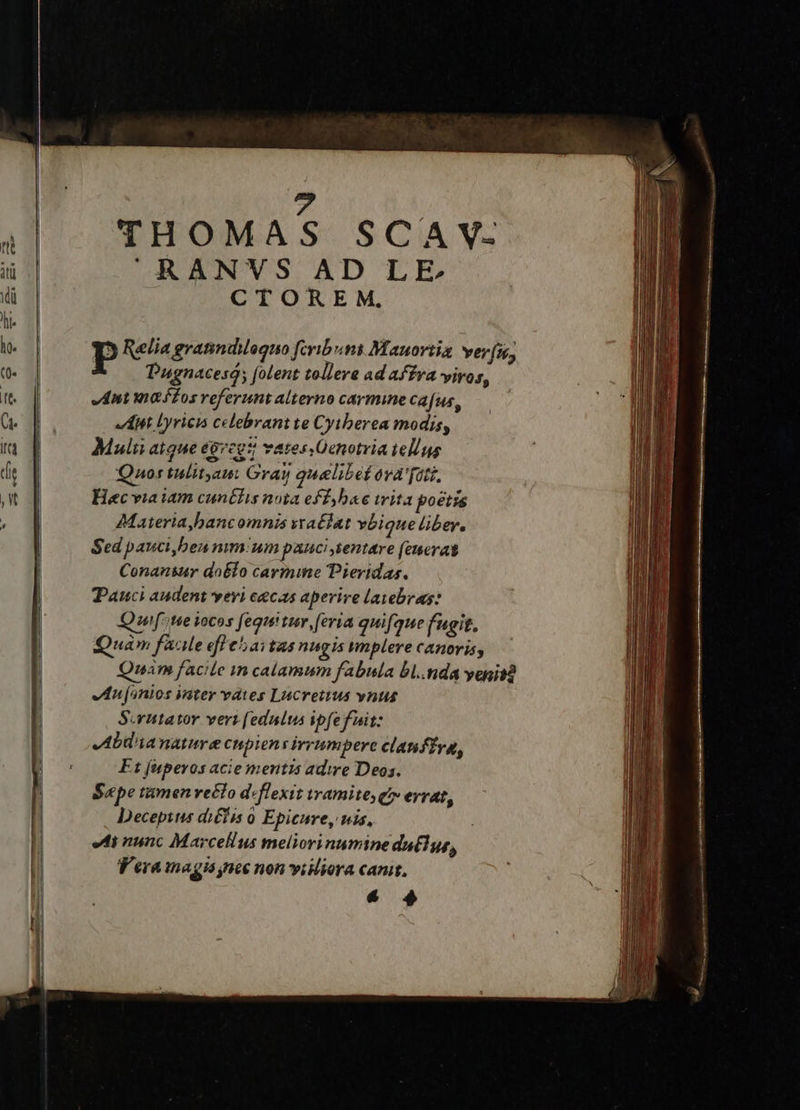 7
THOMAS SCAV-
RANVS AD LE-
CTOREM.
PRælia grandiloquo scribunt Mauortia versu,
Pugnacesq; solent tollere ad astra viros,
Aut mœstos referunt alterno carmine casus,
Aut lyricis celebrant te Cytherea modis,
Multi atque egregij vates, Oenotria tellus
Quos tulit, aut Graij quælibet ora soli.
Hæc via iam cunctis nota est, hæc trita poëtis
Materia, hanc omnis tractat vbique liber.
Sed pauci, heu nimium pauci, tentare seueras
Conantur docto carmine Pieridas.
Pauci audent veri cæcas aperire latebras:
Quisque iocos sequitur, seria quisque fugit.
Quàm facile est chartas nugis implere canoris,
Quàm facile in calamum fabula blanda venit?
Ausonios inter vates Lucretius vnus
Scrutator veri sedulus ipse fuit:
Abdita naturæ cupiens irrumpere claustra,
Et superos acie mentis adire Deos.
Sæpe tamen recto deflexit tramite, & errat,
Deceptus dictis ô Epicure, tuis.
At nunc Marcellus meliori numine ductus,
Vera magis, nec non vtiliora canit.
4
rit
itú
dú
hi-
ho-